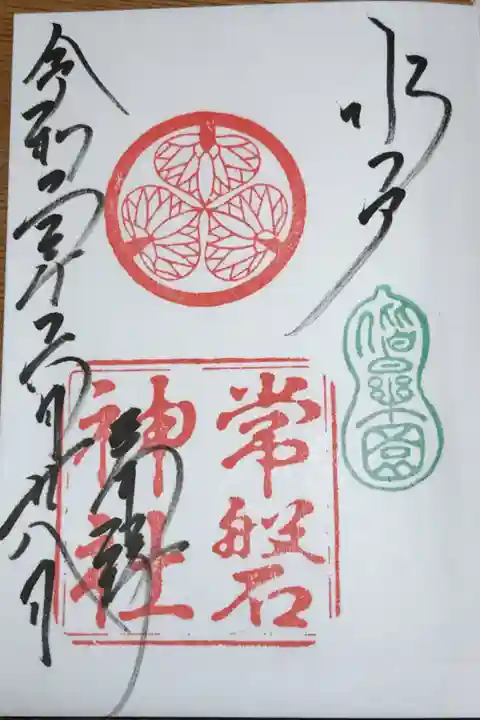 水戸
偕楽園
常磐
神社
奉拝
令和二年六月廿八日